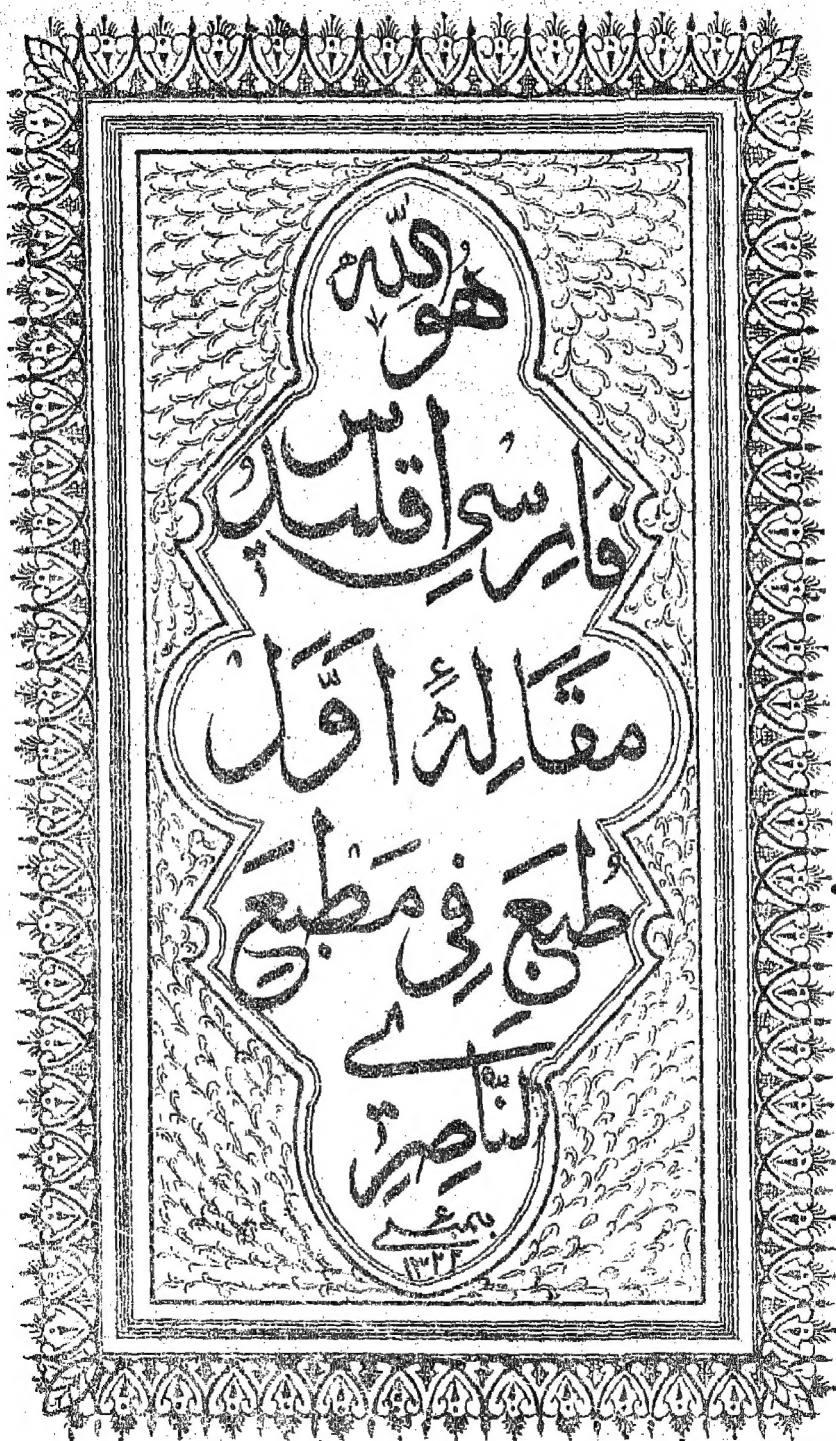 هُوَ اللّٰه
فَارسِی اقلیدُس
مَقَالِهٔ اوَّل
طُبِعَ فِی مَطبَعِ
النَّاصِرِی
بمبئی
۱۳۲۲